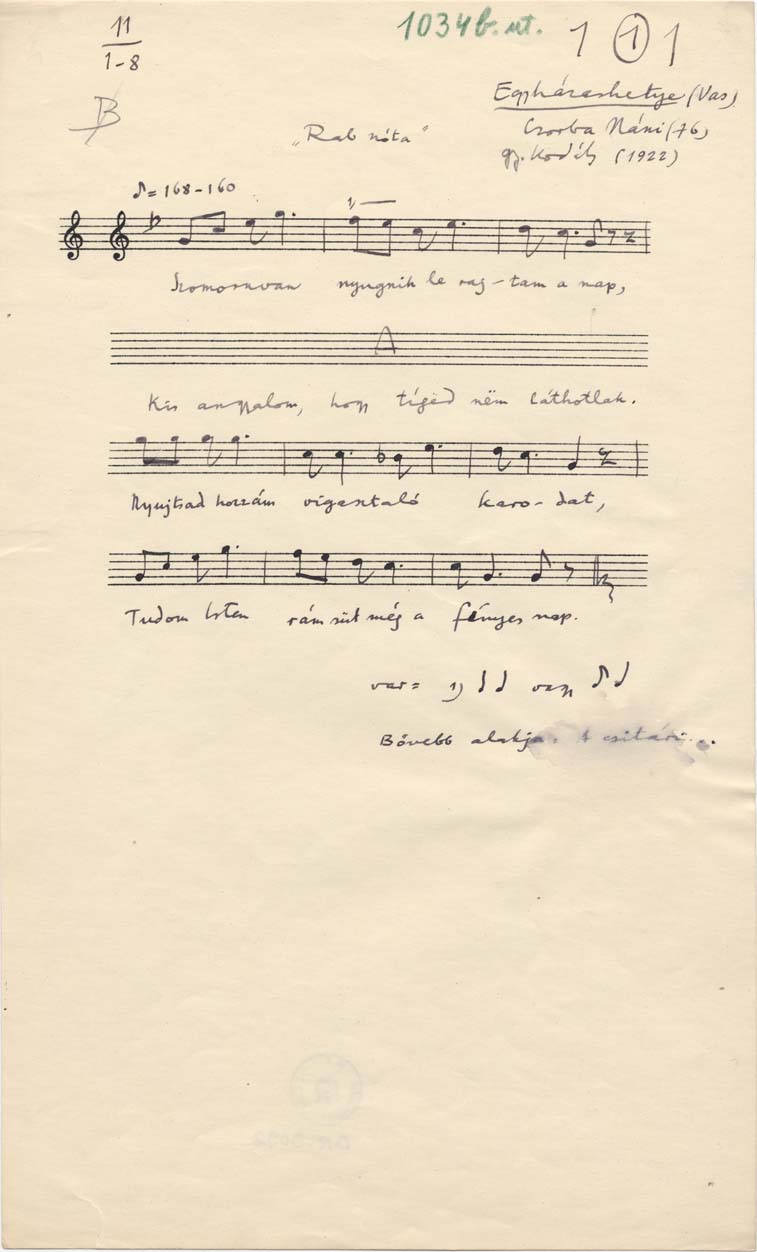 11
1-8
1034 b. ut.
1 1 1
B
Egyházashetye (Vas)
Czorba Náni (76)
gy. Kodály (1922)
„Rab nóta"
♪ = 168-160
1)
Szomoruvan nyugnik le rag-tam a nap,
A
Kis angyalom, hogy tígëd nëm láthotlak.
Nyujtsad hozzám vigasztaló karo-dat,
Tudom Isten rám süt még a fényes nap.
var = 1) ♩ ♩ vagy ♪ ♩
Bővebb alakja: A csitári...